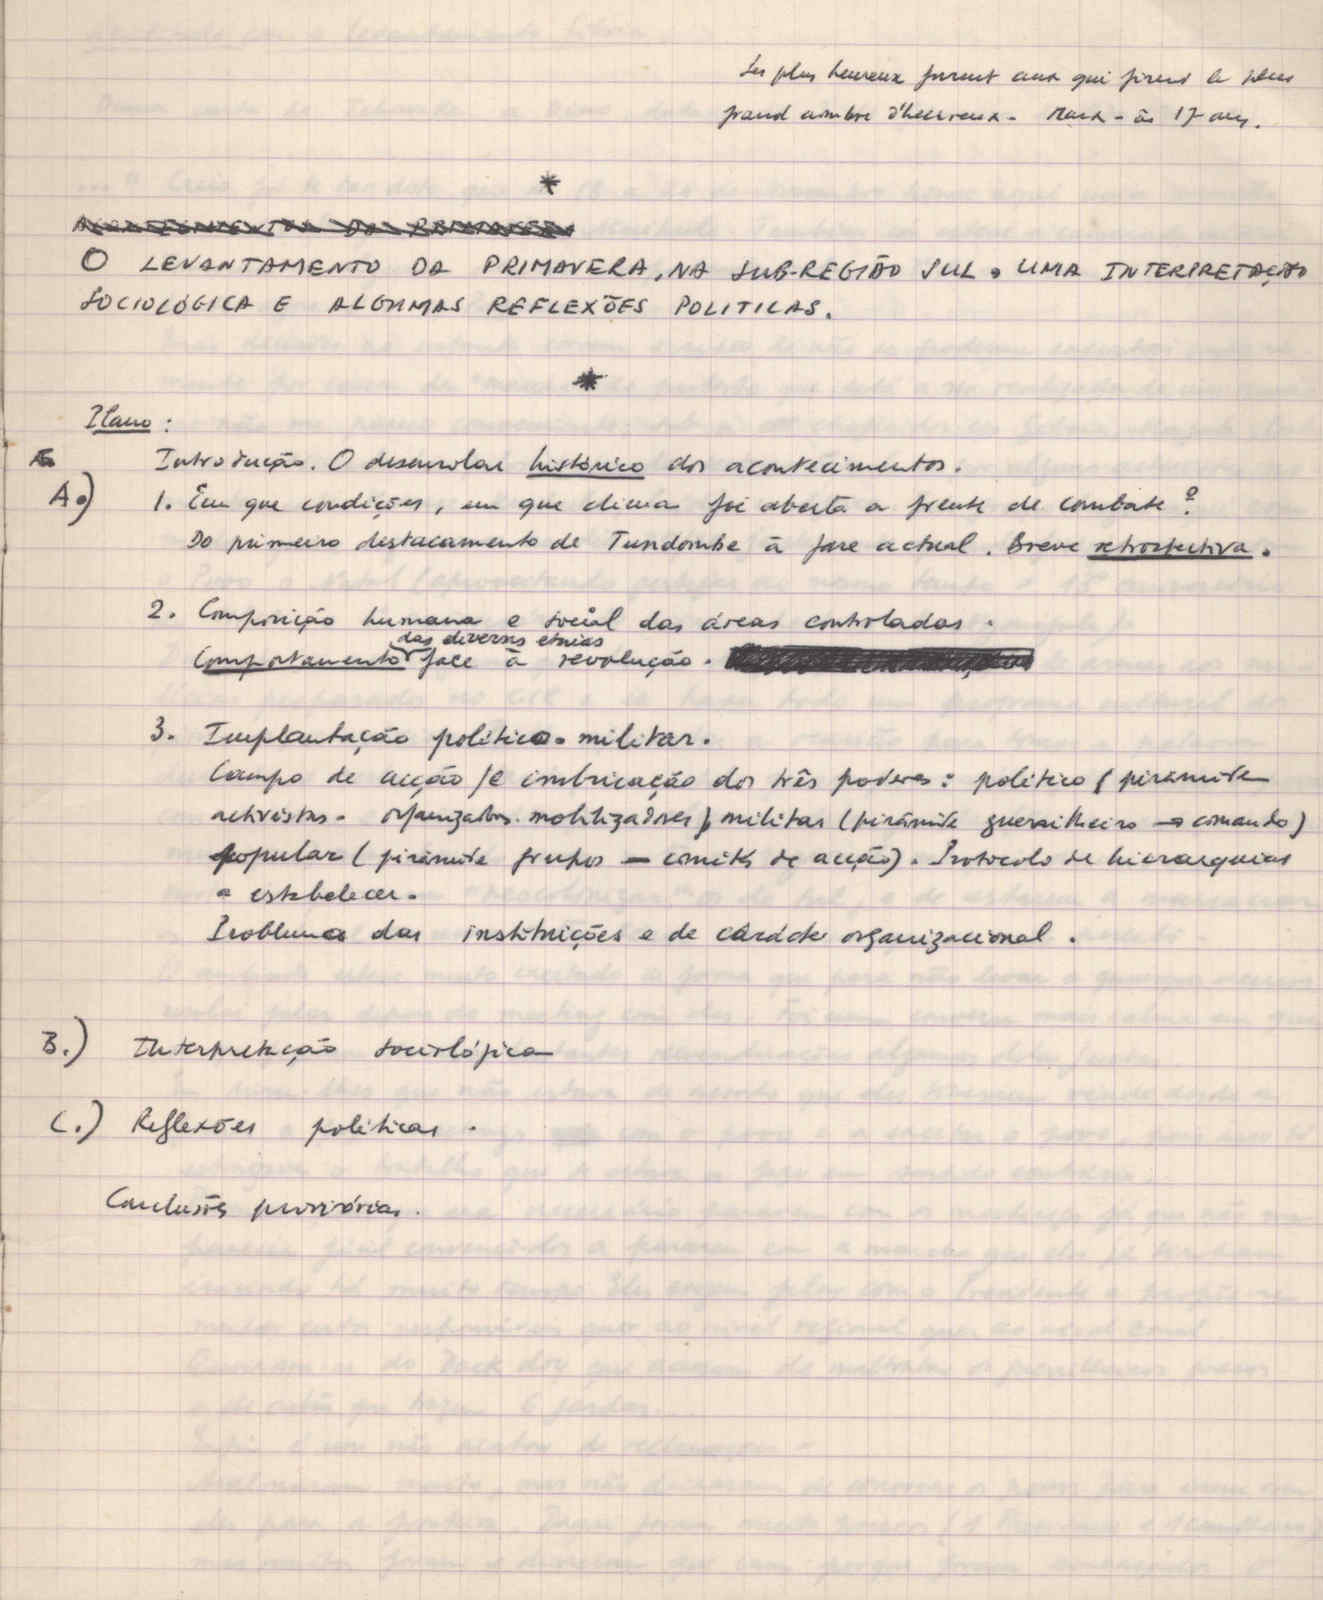 Les plus heureux furent ceux qui firent le plus
grand nombre d'heureux - Marx - às 17 ans.
*
O LEVANTAMENTO DA PRIMAVERA, NA SUB-REGIÃO SUL. UMA INTERPRETAÇÃO
SOCIOLÓGICA E ALGUMAS REFLEXÕES POLITICAS.
*
Plano :
Introdução. O desenrolar histórico dos acontecimentos.
A.) 1. Em que condições, em que clima foi aberta a frente de combate ?
Do primeiro destacamento de Tundombe à fase actual. Breve retrospectiva.
2. Composição humana e social das áreas controladas.
das diversas etnias
Comportamento face à revolução.
3. Implantação politico-militar.
Campo de acção / e imbricação dos três poderes : politico ( pirâmide
activistas - organizadores - mobilizadores ) militar ( pirâmide guerrilheiro → comando )
popular ( pirâmide grupos - comités de acção ). Protocolo de hierarquias
a estabelecer.
Problemas das instituições e de carácter organizacional .
B.) Interpretação sociológica
C.) Reflexões politicas .
Conclusões provisórias .